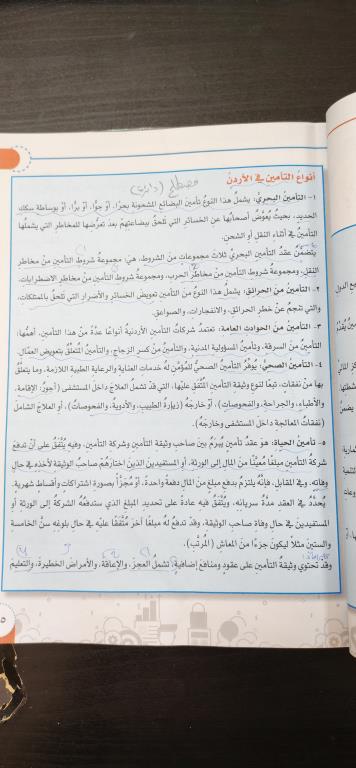 أنواعُ التأمين في الأردن
مصطلح
١- التأمين البحريّ: يشملُ هذا النوعُ تأمينَ البضائع المشحونة بحرًا، أوْ جوًّا، أوْ برًّا، أوْ بوساطة سكك
الحديد، بحيثُ يُعوَّضُ أصحابُها عن الخسائر التي تلحقُ ببضاعتهمْ بعدَ تعرّضها للمخاطر التي يشملُها
التأمينُ في أثناء النقل أو الشحن.
يتضمّنُ عقدُ التأمين البحريّ ثلاثَ مجموعات منَ الشروط، هيَ: مجموعةُ شروط التأمين منْ مخاطر
النقل، ومجموعةُ شروط التأمين منْ مخاطر الحرب، ومجموعةُ شروط التأمين منْ مخاطر الاضطرابات.
٢- تأمين من الحرائق: يشملُ هذا النوعُ منَ التأمين تعويضَ الخسائر والأضرار التي تلحقُ بالممتلكات،
والتي تنجمُ عنْ خطر الحرائق، والانفجارات، والصواعق.
٣- تأمين من الحوادث العامة: تعتمدُ شركاتُ التأمين الأردنيةُ أنواعًا عدّةً منْ هذا التأمين، أهمُّها:
التأمينُ منَ السرقة، وتأمينُ المسؤولية المدنية، والتأمينُ منْ كسر الزجاج، والتأمينُ المُتعلّقُ بتعويض العمّال.
٤- التأمين الصحيّ: يُوفّرُ التأمينُ الصحيُّ للمُؤمَّن لهُ خدمات العناية والرعاية الطبية اللازمة، وما يتعلقُ
بها منْ نفقات، تبعًا لنوع وثيقة التأمين المُتّفَق عليْها، التي قدْ تشملُ العلاجَ داخلَ المستشفى (أجورُ: الإقامة،
والأطباء، والجراحة، والفحوصات)، أوْ خارجَهُ (زيارةُ الطبيب، والأدويةُ، والفحوصاتُ)، أو العلاجَ الشاملَ
(نفقاتُ المعالجة داخلَ المستشفى وخارجَهُ).
٥- تأمينُ الحياة: هوَ عقدُ تأمين يُبرَمُ بينَ صاحب وثيقة التأمين وشركة التأمين، وفيه يُتّفَقُ على أنْ تدفعَ
شركةُ التأمين مبلغًا مُعيّنًا منَ المال إلى الورثة، أو المستفيدينَ الذينَ اختارَهُمْ صاحبُ الوثيقة لأخذه في حال
وفاته. وفي المقابل، فإنَّهُ يلتزمُ بدفع مبلغ منَ المال دفعةً واحدةً، أوْ مُجزَّأً بصورة اشتراكات وأقساط شهرية.
يُحدَّدُ في العقد مدةُ سريانه، ويُتّفَقُ فيه عادةً على تحديد المبلغ الذي ستدفعُهُ الشركةُ إلى الورثة أو
المستفيدينَ في حال وفاة صاحب الوثيقة، وقدْ تدفعُ لهُ مبلغًا آخرَ مُتّفَقًا عليْه في حال بلوغه سنَّ الخامسة
والستين مثلًا ليكونَ جزءًا منَ المعاش (المُرتَّب).
وقدْ تحتوي وثيقةُ التأمين على عقود ومنافعَ إضافية، تشملُ العجزَ، والإعاقةَ، والأمراضَ الخطيرةَ، والتعليمَ